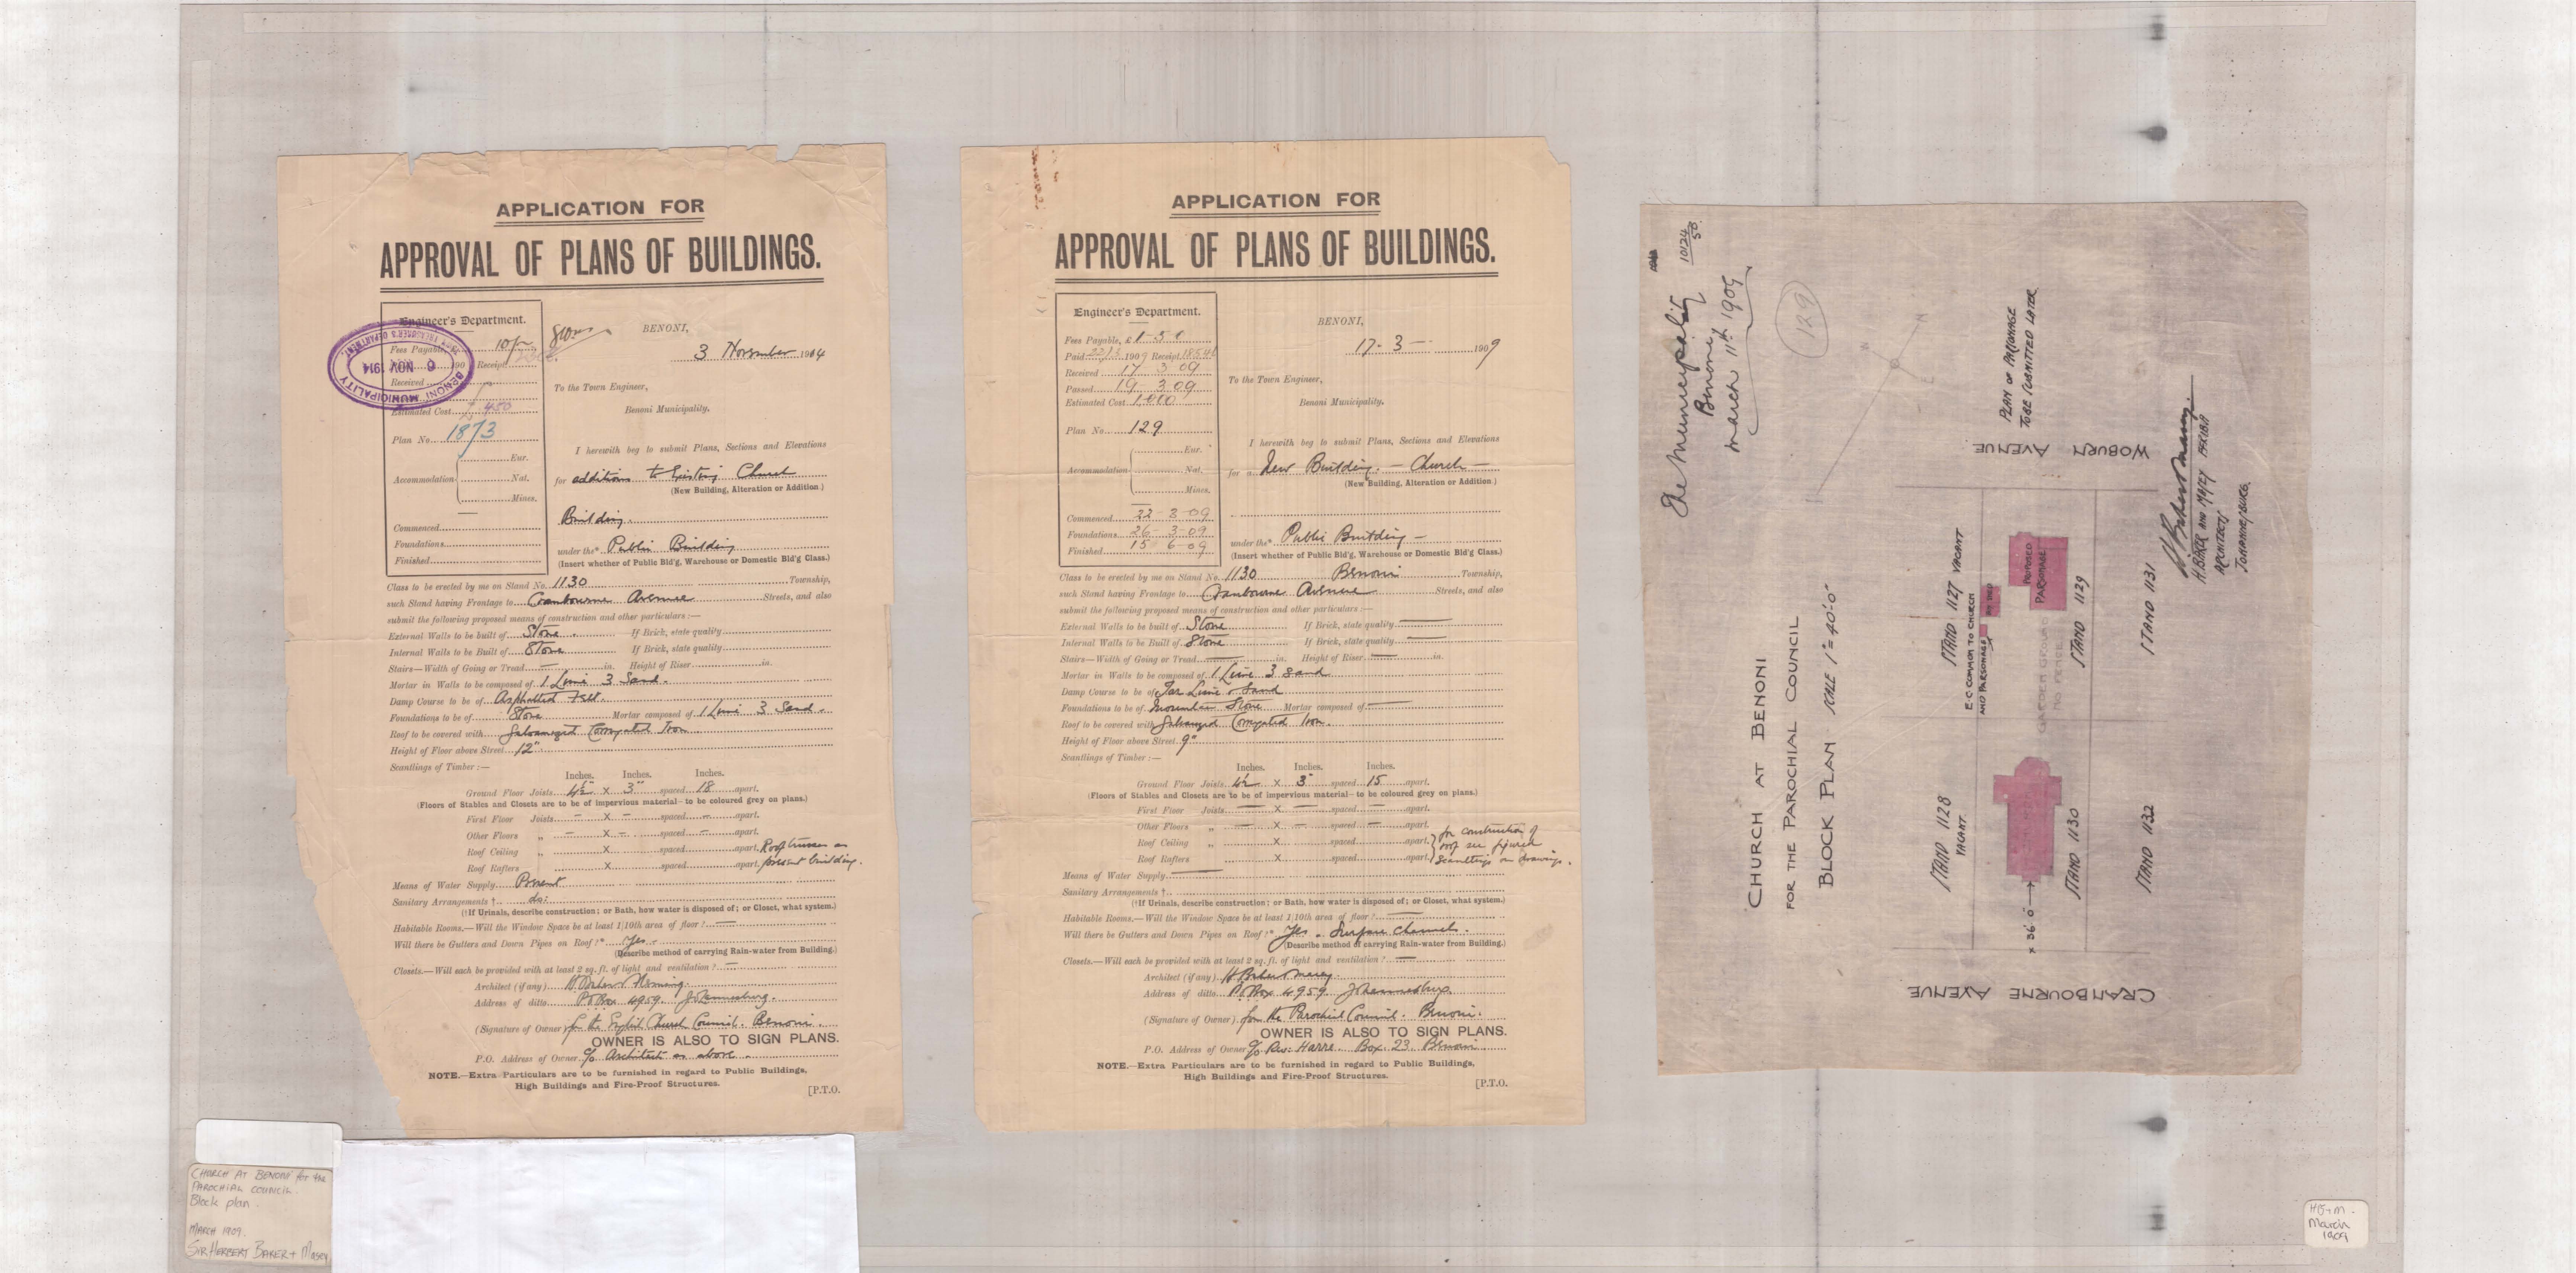 APPLICATION FOR
APPROVAL OF PLANS OF BUILDINGS.
Engineer's Department.
Fees Payable 10/-
190 Receipt
Received
Estimated Cost £ 450
Plan No. 1873
Eur.
Accommodation Nat.
Mines.
Commenced
Foundations
Finished
BENONI MUNICIPALITY
6 NOV 1914
TOWN TREASURER'S DEPARTMENT
BENONI,
3 November 1914
To the Town Engineer,
Benoni Municipality.
I herewith beg to submit Plans, Sections and Elevations
for additions to Existing Church
(New Building, Alteration or Addition.)
Building
under the* Public Building
(Insert whether of Public Bld'g, Warehouse or Domestic Bld'g Class.)
Class to be erected by me on Stand No. 1130 Township,
such Stand having Frontage to Cranbourne Avenue Streets, and also
submit the following proposed means of construction and other particulars :—
External Walls to be built of Stone. If Brick, state quality
Internal Walls to be Built of Stone If Brick, state quality
Stairs—Width of Going or Tread — in. Height of Riser in.
Mortar in Walls to be composed of 1 Lime 3 Sand.
Damp Course to be of Asphalted Felt.
Foundations to be of Stone Mortar composed of 1 Lime 3 Sand.
Roof to be covered with Galvanized Corrugated Iron
Height of Floor above Street 12"
Scantlings of Timber :—
Inches. Inches. Inches.
Ground Floor Joists 4½" X 3" spaced 18 apart.
(Floors of Stables and Closets are to be of impervious material—to be coloured grey on plans.)
First Floor Joists — X — spaced — apart.
Other Floors „ — X — spaced — apart.
Roof Ceiling „ X spaced apart. Roof trusses as
Roof Rafters X spaced apart. present building.
Means of Water Supply Present
Sanitary Arrangements † do:
(†If Urinals, describe construction; or Bath, how water is disposed of; or Closet, what system.)
Habitable Rooms.—Will the Window Space be at least 1/10th area of floor? —
Will there be Gutters and Down Pipes on Roof?* Yes.
(Describe method of carrying Rain-water from Building.)
Closets.—Will each be provided with at least 2 sq. ft. of light and ventilation? —
Architect (if any) H Baker & Fleming.
Address of ditto PO Box 4959. Johannesburg.
(Signature of Owner) for the English Church Council. Benoni.
OWNER IS ALSO TO SIGN PLANS.
P.O. Address of Owner c/o Architects as above.
NOTE.—Extra Particulars are to be furnished in regard to Public Buildings,
High Buildings and Fire-Proof Structures.
[P.T.O.
APPLICATION FOR
APPROVAL OF PLANS OF BUILDINGS.
Engineer's Department.
Fees Payable, £1-5-0
Paid 22/3 1909 Receipt
Received 17 3 09
Passed 19 3 09
Estimated Cost 1000
Plan No. 129
Eur.
Accommodation Nat.
Mines.
Commenced 22-3-09
Foundations 26-3-09
Finished 15 6-09
BENONI,
17-3— 1909
To the Town Engineer,
Benoni Municipality.
I herewith beg to submit Plans, Sections and Elevations
for a New Building. — Church —
(New Building, Alteration or Addition.)
under the* Public Building —
(Insert whether of Public Bld'g, Warehouse or Domestic Bld'g Class.)
Class to be erected by me on Stand No. 1130 Benoni Township,
such Stand having Frontage to Cranbourne Avenue Streets, and also
submit the following proposed means of construction and other particulars :—
External Walls to be built of Stone If Brick, state quality —
Internal Walls to be Built of Stone If Brick, state quality —
Stairs—Width of Going or Tread — in. Height of Riser — in.
Mortar in Walls to be composed of 1 Lime 3 Sand
Damp Course to be of Tar Lime & Sand
Foundations to be of Mountain Stone Mortar composed of —
Roof to be covered with Galvanized Corrugated Iron.
Height of Floor above Street 9"
Scantlings of Timber :—
Inches. Inches. Inches.
Ground Floor Joists 4½ X 3" spaced 15 apart.
(Floors of Stables and Closets are to be of impervious material—to be coloured grey on plans.)
First Floor Joists — X — spaced — apart.
Other Floors „ — X — spaced — apart.
Roof Ceiling „ X spaced apart.
Roof Rafters X spaced apart.
for construction of
roof see figured
scantlings on drawings.
Means of Water Supply —
Sanitary Arrangements †
(†If Urinals, describe construction; or Bath, how water is disposed of; or Closet, what system.)
Habitable Rooms.—Will the Window Space be at least 1/10th area of floor? —
Will there be Gutters and Down Pipes on Roof?* Yes. Surface Channels.
(Describe method of carrying Rain-water from Building.)
Closets.—Will each be provided with at least 2 sq. ft. of light and ventilation? —
Architect (if any) H Baker & Masey.
Address of ditto P.O Box 4959. Johannesburg.
(Signature of Owner) for the Parochial Council. Benoni.
OWNER IS ALSO TO SIGN PLANS.
P.O. Address of Owner c/o Rev: Harre. Box. 23. Benoni
NOTE.—Extra Particulars are to be furnished in regard to Public Buildings,
High Buildings and Fire-Proof Structures.
[P.T.O.
10124
50
The Municipality
Benoni
March 11th 1909
129
CHURCH AT BENONI
FOR THE PAROCHIAL COUNCIL
BLOCK PLAN SCALE 1"=40'-0"
N
W
E
PLAN OF PARSONAGE
TO BE SUBMITTED LATER
WOBURN AVENUE
STAND 1127 VACANT
E.C COMMON TO CHURCH
AND PARSONAGE
PROPOSED
PARSONAGE
GARDEN GROUND
NO FENCE
STAND 1129
STAND 1131
STAND 1128
VACANT.
STAND 1130
STAND 1132
36'.0"
CRANBOURNE AVENUE
H Baker & Masey.
H. BAKER AND MASEY FFRIBA
ARCHITECTS
JOHANNESBURG.
CHURCH AT BENONI for the
PAROCHIAL COUNCIL.
Block plan
MARCH 1909.
SIR HERBERT BAKER + MASEY
HB+M.
March
1909